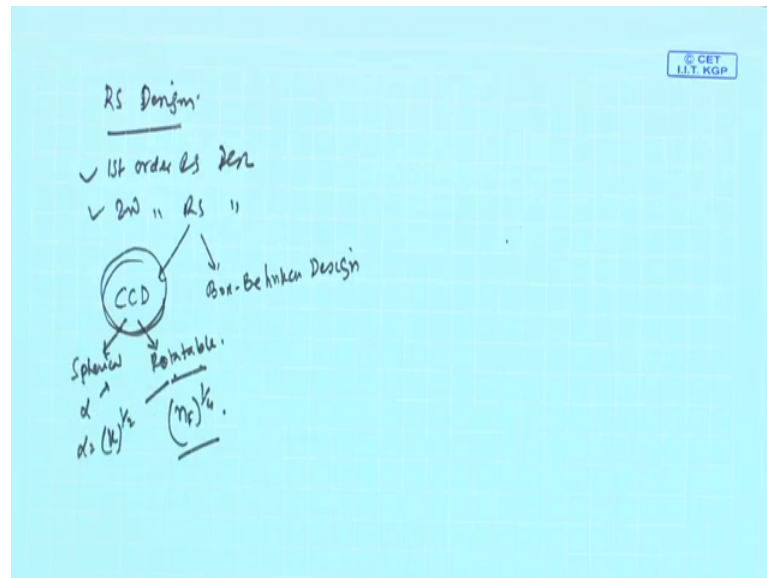 © CET
I.I.T. KGP
RS Design.
1st order RS Des
2nd " RS "
CCD
Box-Behnken Design
Spherical Rotatable.
α
α = (k)^{1/2} (n_F)^{1/4}.